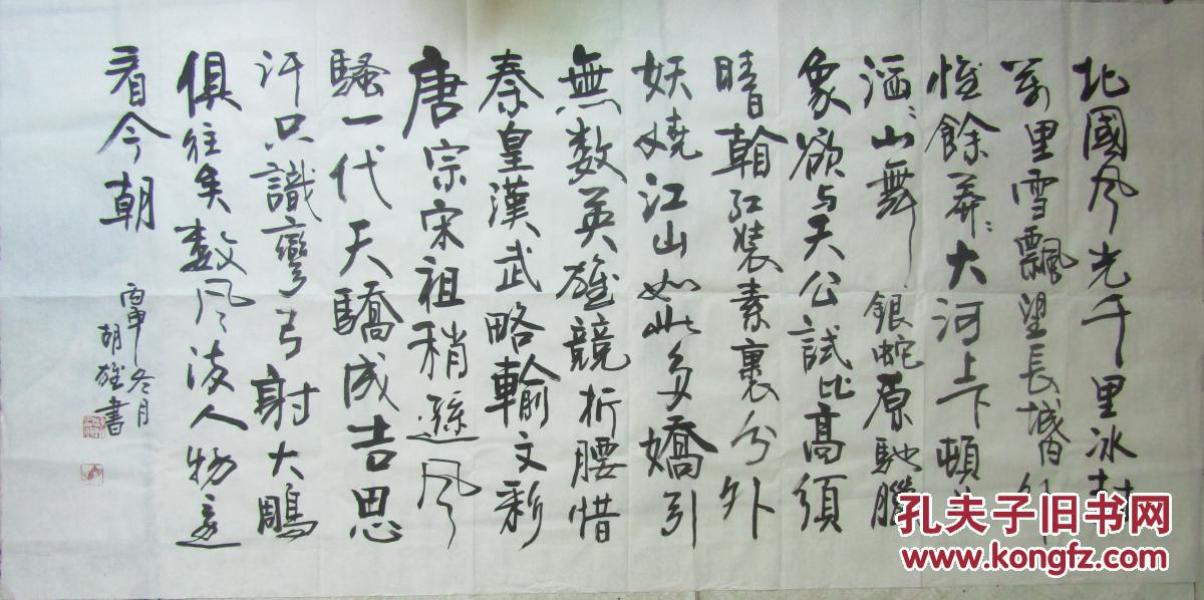 北國风光千里冰封
萬里雪飄望長城外
惟餘莽〻大河上下頓
滔〻山舞銀蛇原馳臘
象欲与天公試比高須
晴红装素裹分外
妖嬈江山如此多嬌引
無数英雄競折腰惜
秦皇漢武略輸文彩
唐宗宋祖稍遜风
騷一代天驕成吉思
汗只識彎弓射大鵰
俱往矣数风流人物還
看今朝
丙申冬月
胡雄書
孔夫子旧书网
www.kongfz.com